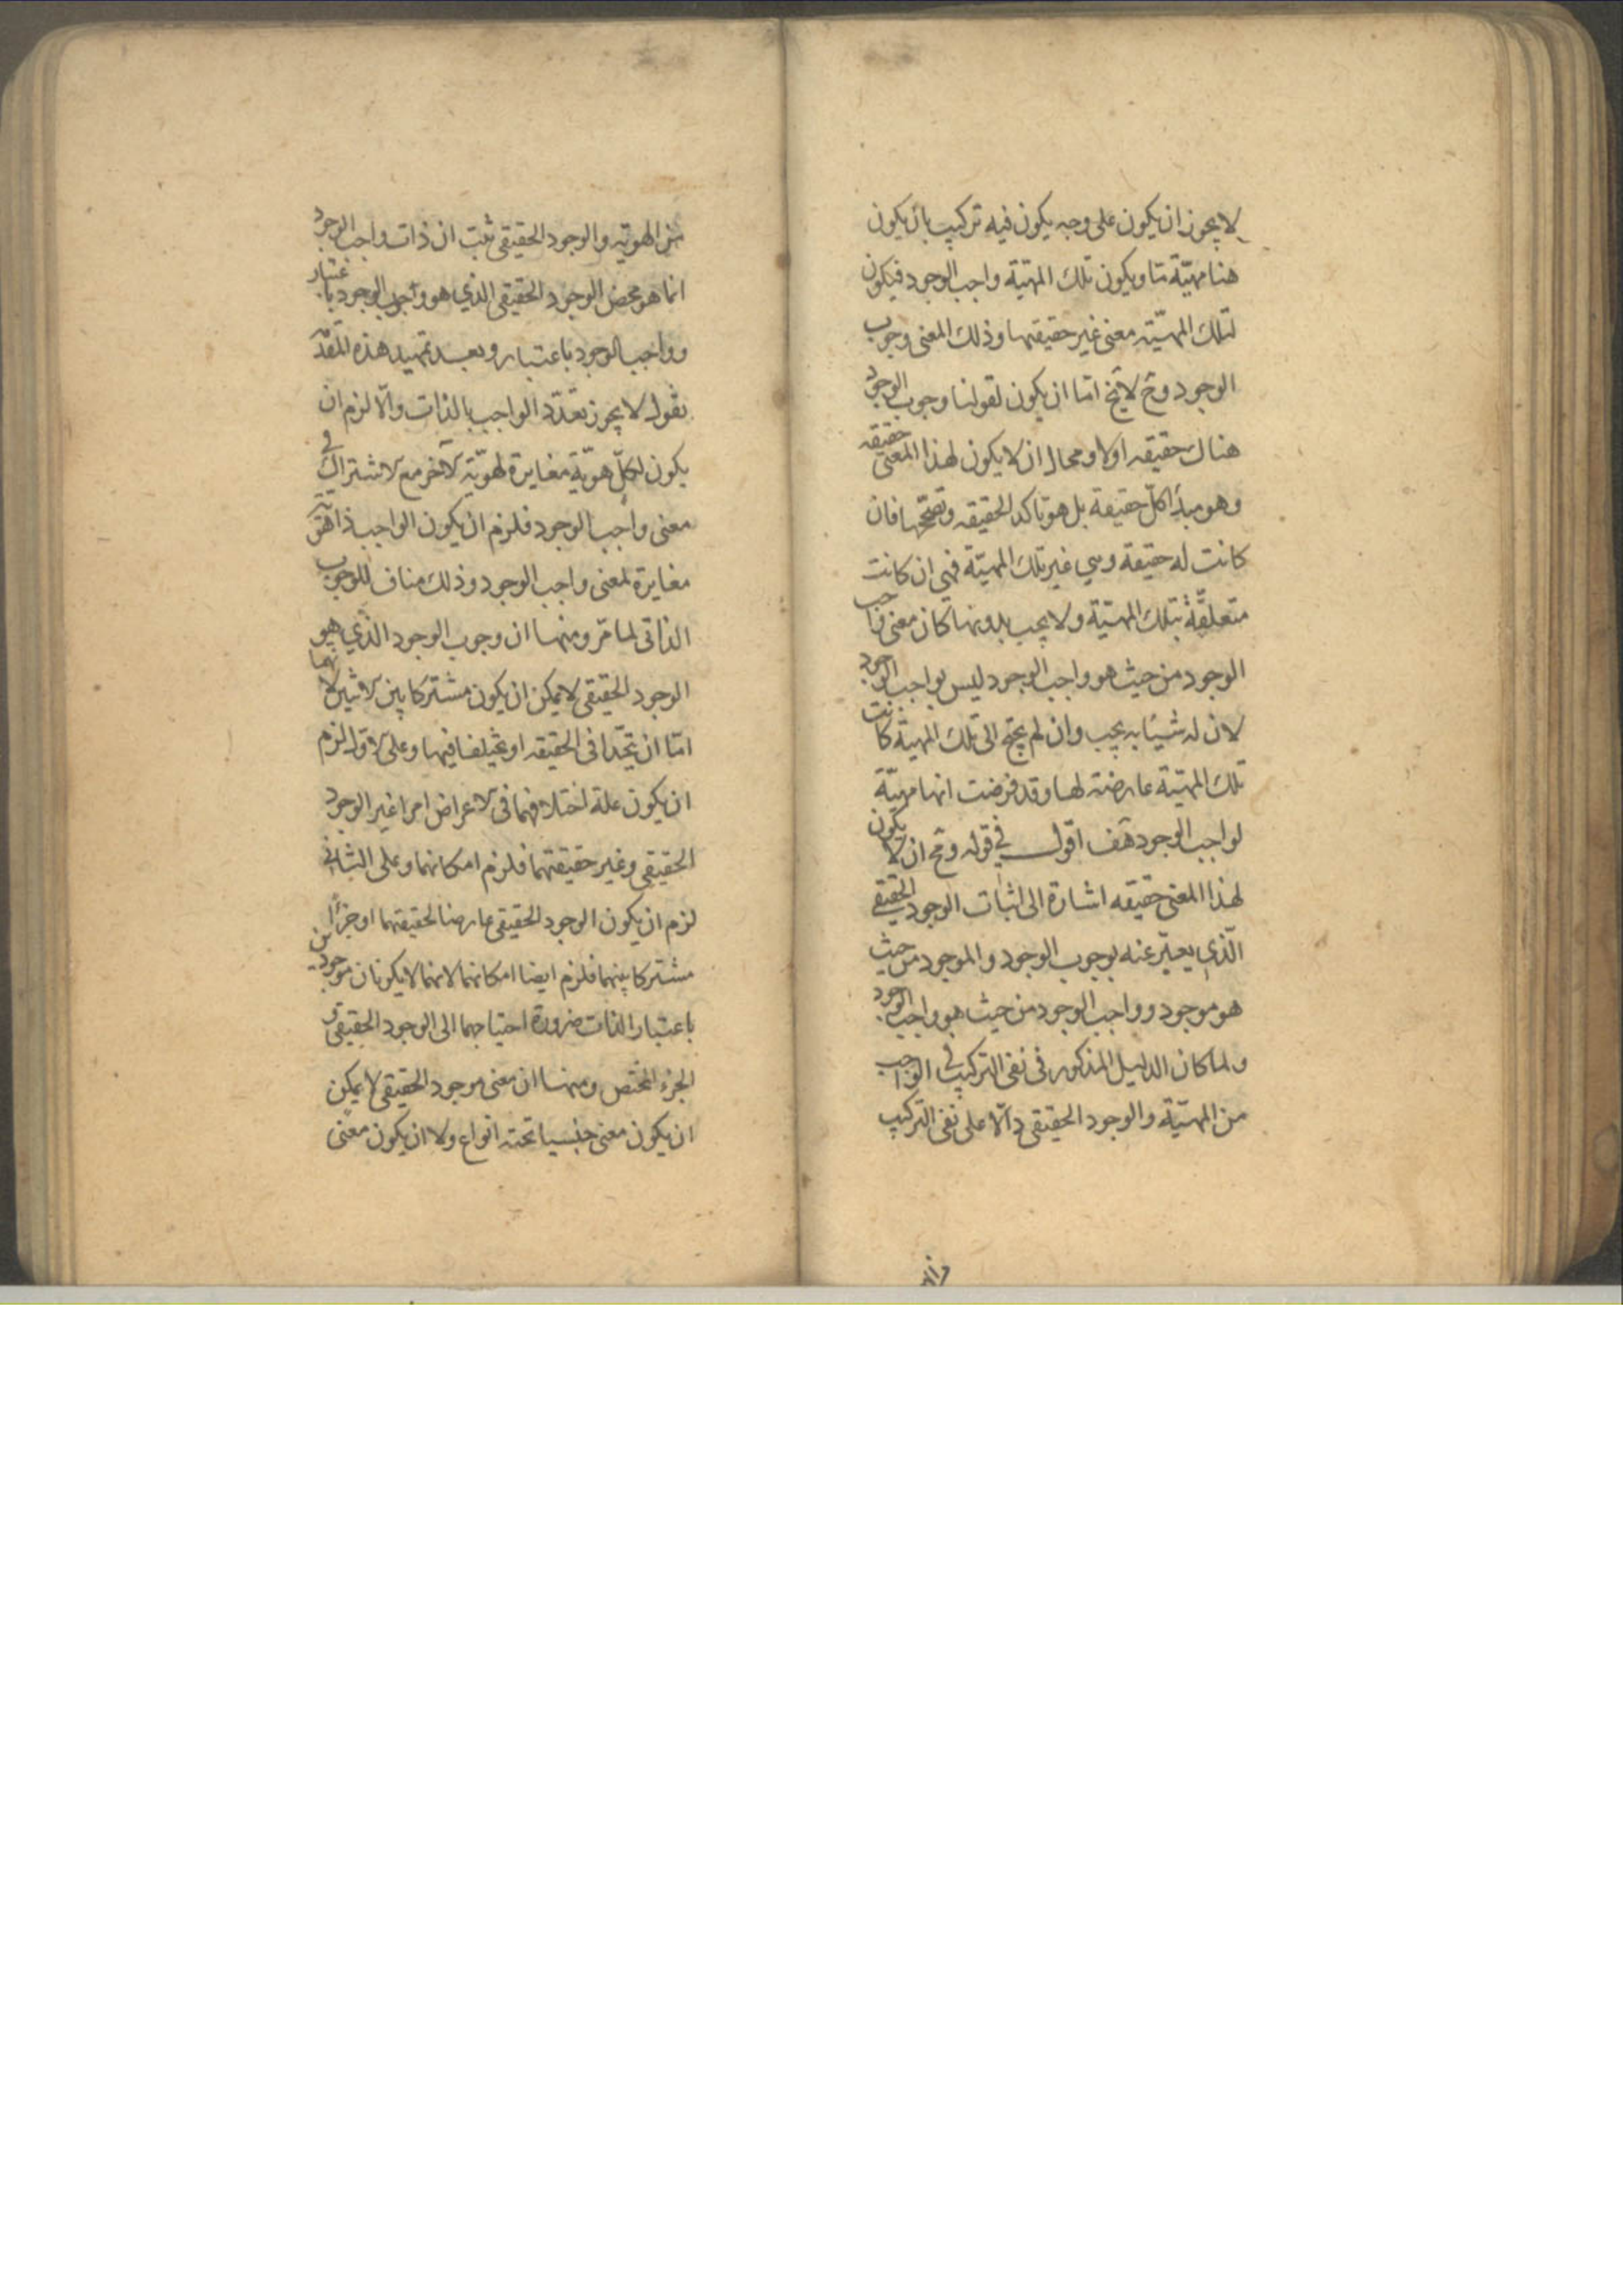 لا يجوز ان يكون على وجه يكون فيه تركيب بان يكون
هنا مهيّة ما و يكون تلك المهيّة واجب الوجود فيكون
لتلك المهيّة معنى غير حقيقتها وذلك المعنى وجوب
الوجود وح لا يخ امّا ان يكون لقولنا وجوب الوجود
هناك حقيقه اولا ومحال ان لا يكون لهذا المعنى حقيقه
وهو مبدأ كلّ حقيقة بل هو تاكد الحقيقه وتصحّحها فان
كانت له حقيقة وهي غير تلك المهيّة فهى ان كانت
متعلّقة بتلك المهيّة ولا يجب بدونها كان معنى واجب
الوجود من حيث هو واجب الوجود ليس بواجب الوجود
لان له شيئا به يجب وان لم يحتج الى تلك المهيّة كانت
تلك المهيّة عارضة لها وقد فرضت انها مهيّة
لواجب الوجود هف اقول في قوله و مح ان لا يكون
لهذا المعنى حقيقه اشارة الى اثبات الوجود الحقيقي
الّذي يعبّر عنه بوجوب الوجود و الموجود من حيث
هو موجود وواجب الوجود من حيث هو واجب الوجود
ولما كان الدليل المذكور فى نفى التركيب في الواجب
من المهيّة والوجود الحقيقي دالّا على نفى التركيب
من الهويّه والوجود الحقيقي ثبت ان ذات واجب الوجود
انما هو محض الوجود الحقيقي الذي هو وجوب الوجود باعتبار
وواجب الوجود باعتبار وبعد تمهيد هذه المقدّمة
نقول لا يجوز تعدّد الواجب بالذات والّا لزم ان
يكون لكلّ هويّة مغايرة لهويّة الآخر مع الاشتراك في
معنى واجب الوجود فلزم ان يكون الواجب ذا هويّة
مغايرة لمعنى واجب الوجود وذلك مناف للوجوب
الذاتى لما مرّ ومنها ان وجوب الوجود الذي هو
الوجود الحقيقي لا يمكن ان يكون مشتركا بين الاثنين لانهما
امّا ان يتّحدا فى الحقيقه او يختلفا فيها وعلى الاوّل لزم
ان يكون علة اختلافهما فى الاعراض امرا غير الوجود
الحقيقي وغير حقيقتهما فلزم امكانهما وعلى الثاني
لزم ان يكون الوجود الحقيقي عارضا لحقيقتهما او جزأ
مشتركا بينهما فلزم ايضا امكانهما لانهما لا يكونان موجودين
باعتبار الذات ضرورة احتياجهما الى الوجود الحقيقي و
الجزء المختص ومنها ان معنى موجود الحقيقي لا يمكن
ان يكون معنى جنسيا تحته انواع ولا ان يكون معنى